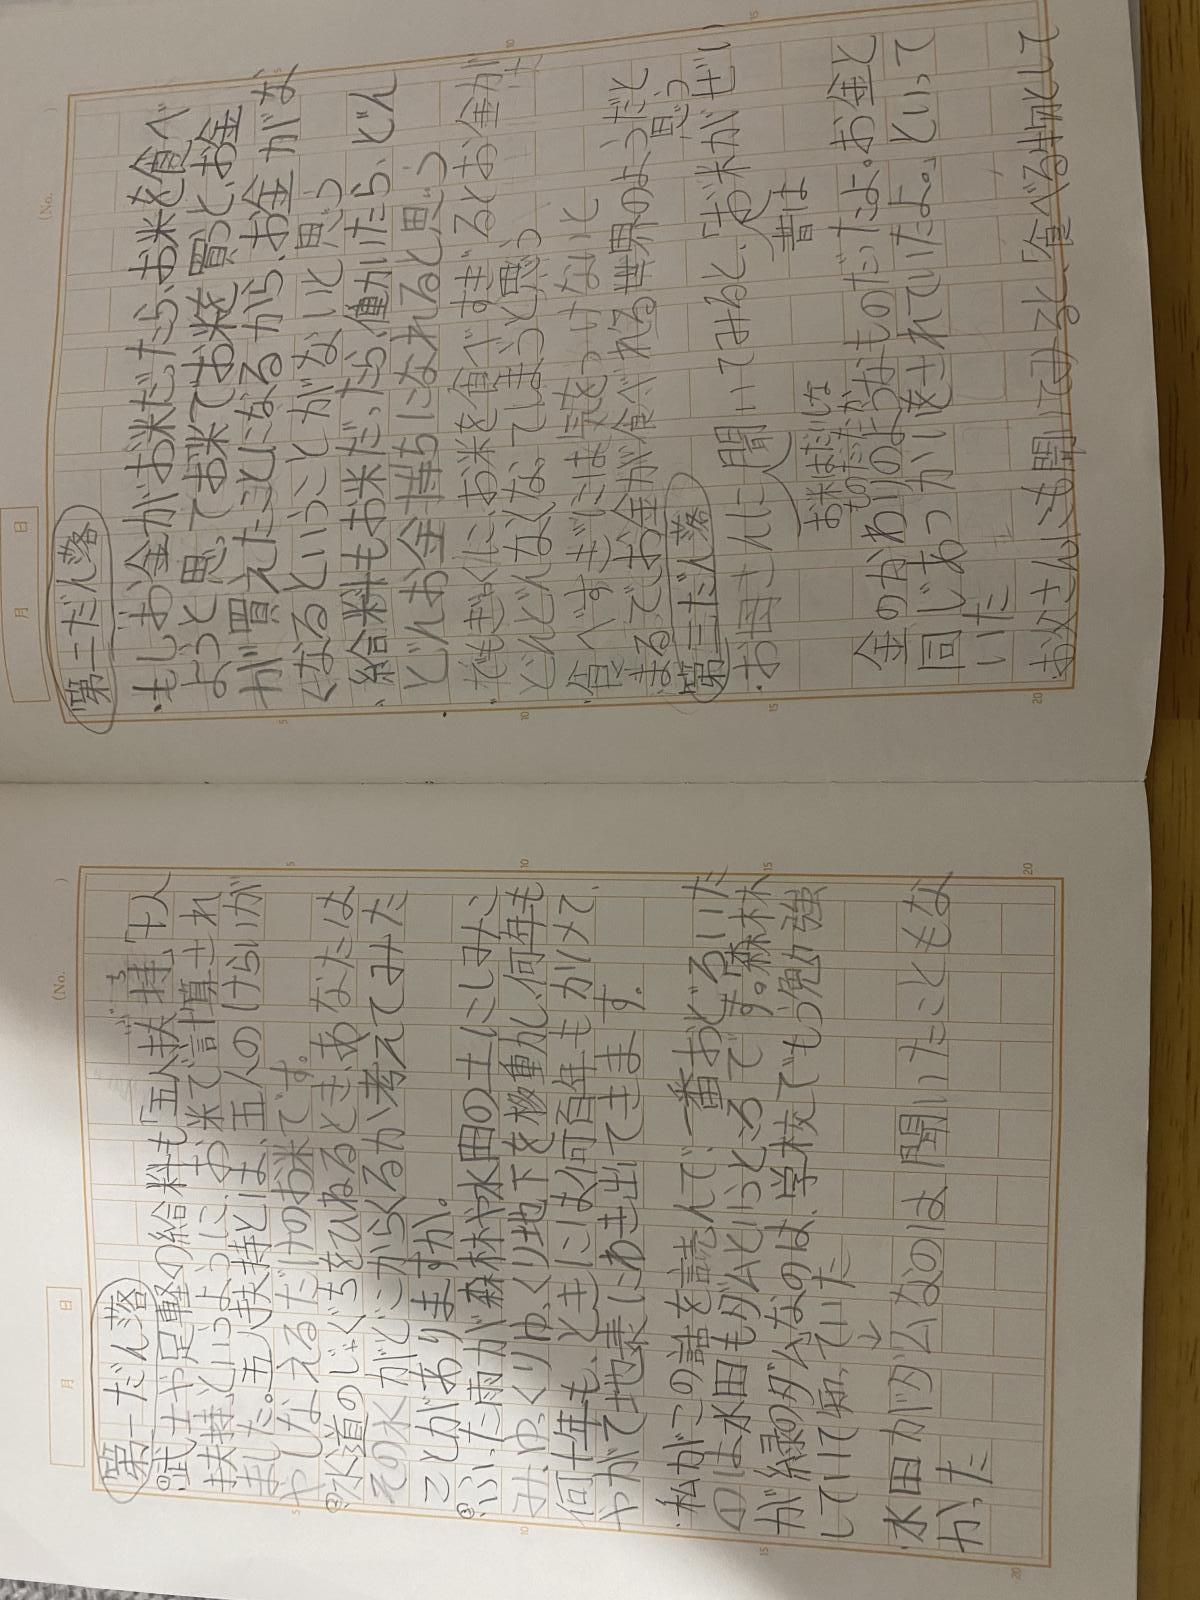 第一だん落
①武士や足軽の給料も「五人扶持」「七人
扶持」というように、お米で計算され
ました。五人扶持とは、五人のけらいが
やしなえるだけのお米です。
②水道のじゃぐちをひねるとき、あなたは
その水がどこからくるか考えてみた
ことがありますか。
③ふった雨が森林や水田の土にしみこ
み、ゆっくりゆっくり地下を移動し、何年も
何十年も、ときには何百年もかけて、
やがて地表にわき出てきます。
・私がこの話を読んで、一番おどろいた
のは水田もダムというところです。森林
が緑のダムなのは、学校でも勉強
していて知っていた
↓
・水田がダムなのは聞いたこともな
かった
第二だん落
・もしお金がお米だったら、お米を食べ
ようと思ってお米でお米を買うと、お金
が買えたことになるから、お金がな
くなるということがないと思う
・給料もお米だったら、働いたら、どん
どんお金持ちになれると思う
・でもぎゃくに、お米を食べすぎるとお金が
どんどんなくなってしまうと思う
・食べすぎには気をつけないと
・まるでお金が食べれる世界のようだと
思った
第三だん落
・お母さんに聞いてみると、「お米がぜい
昔は
お米はだいじな
ものだったが
金のかわりのようなものだったよ。お金と
同じあつかいをされていたよ。」といって
いた
・お父さんにも聞いてみると、「食べる物として